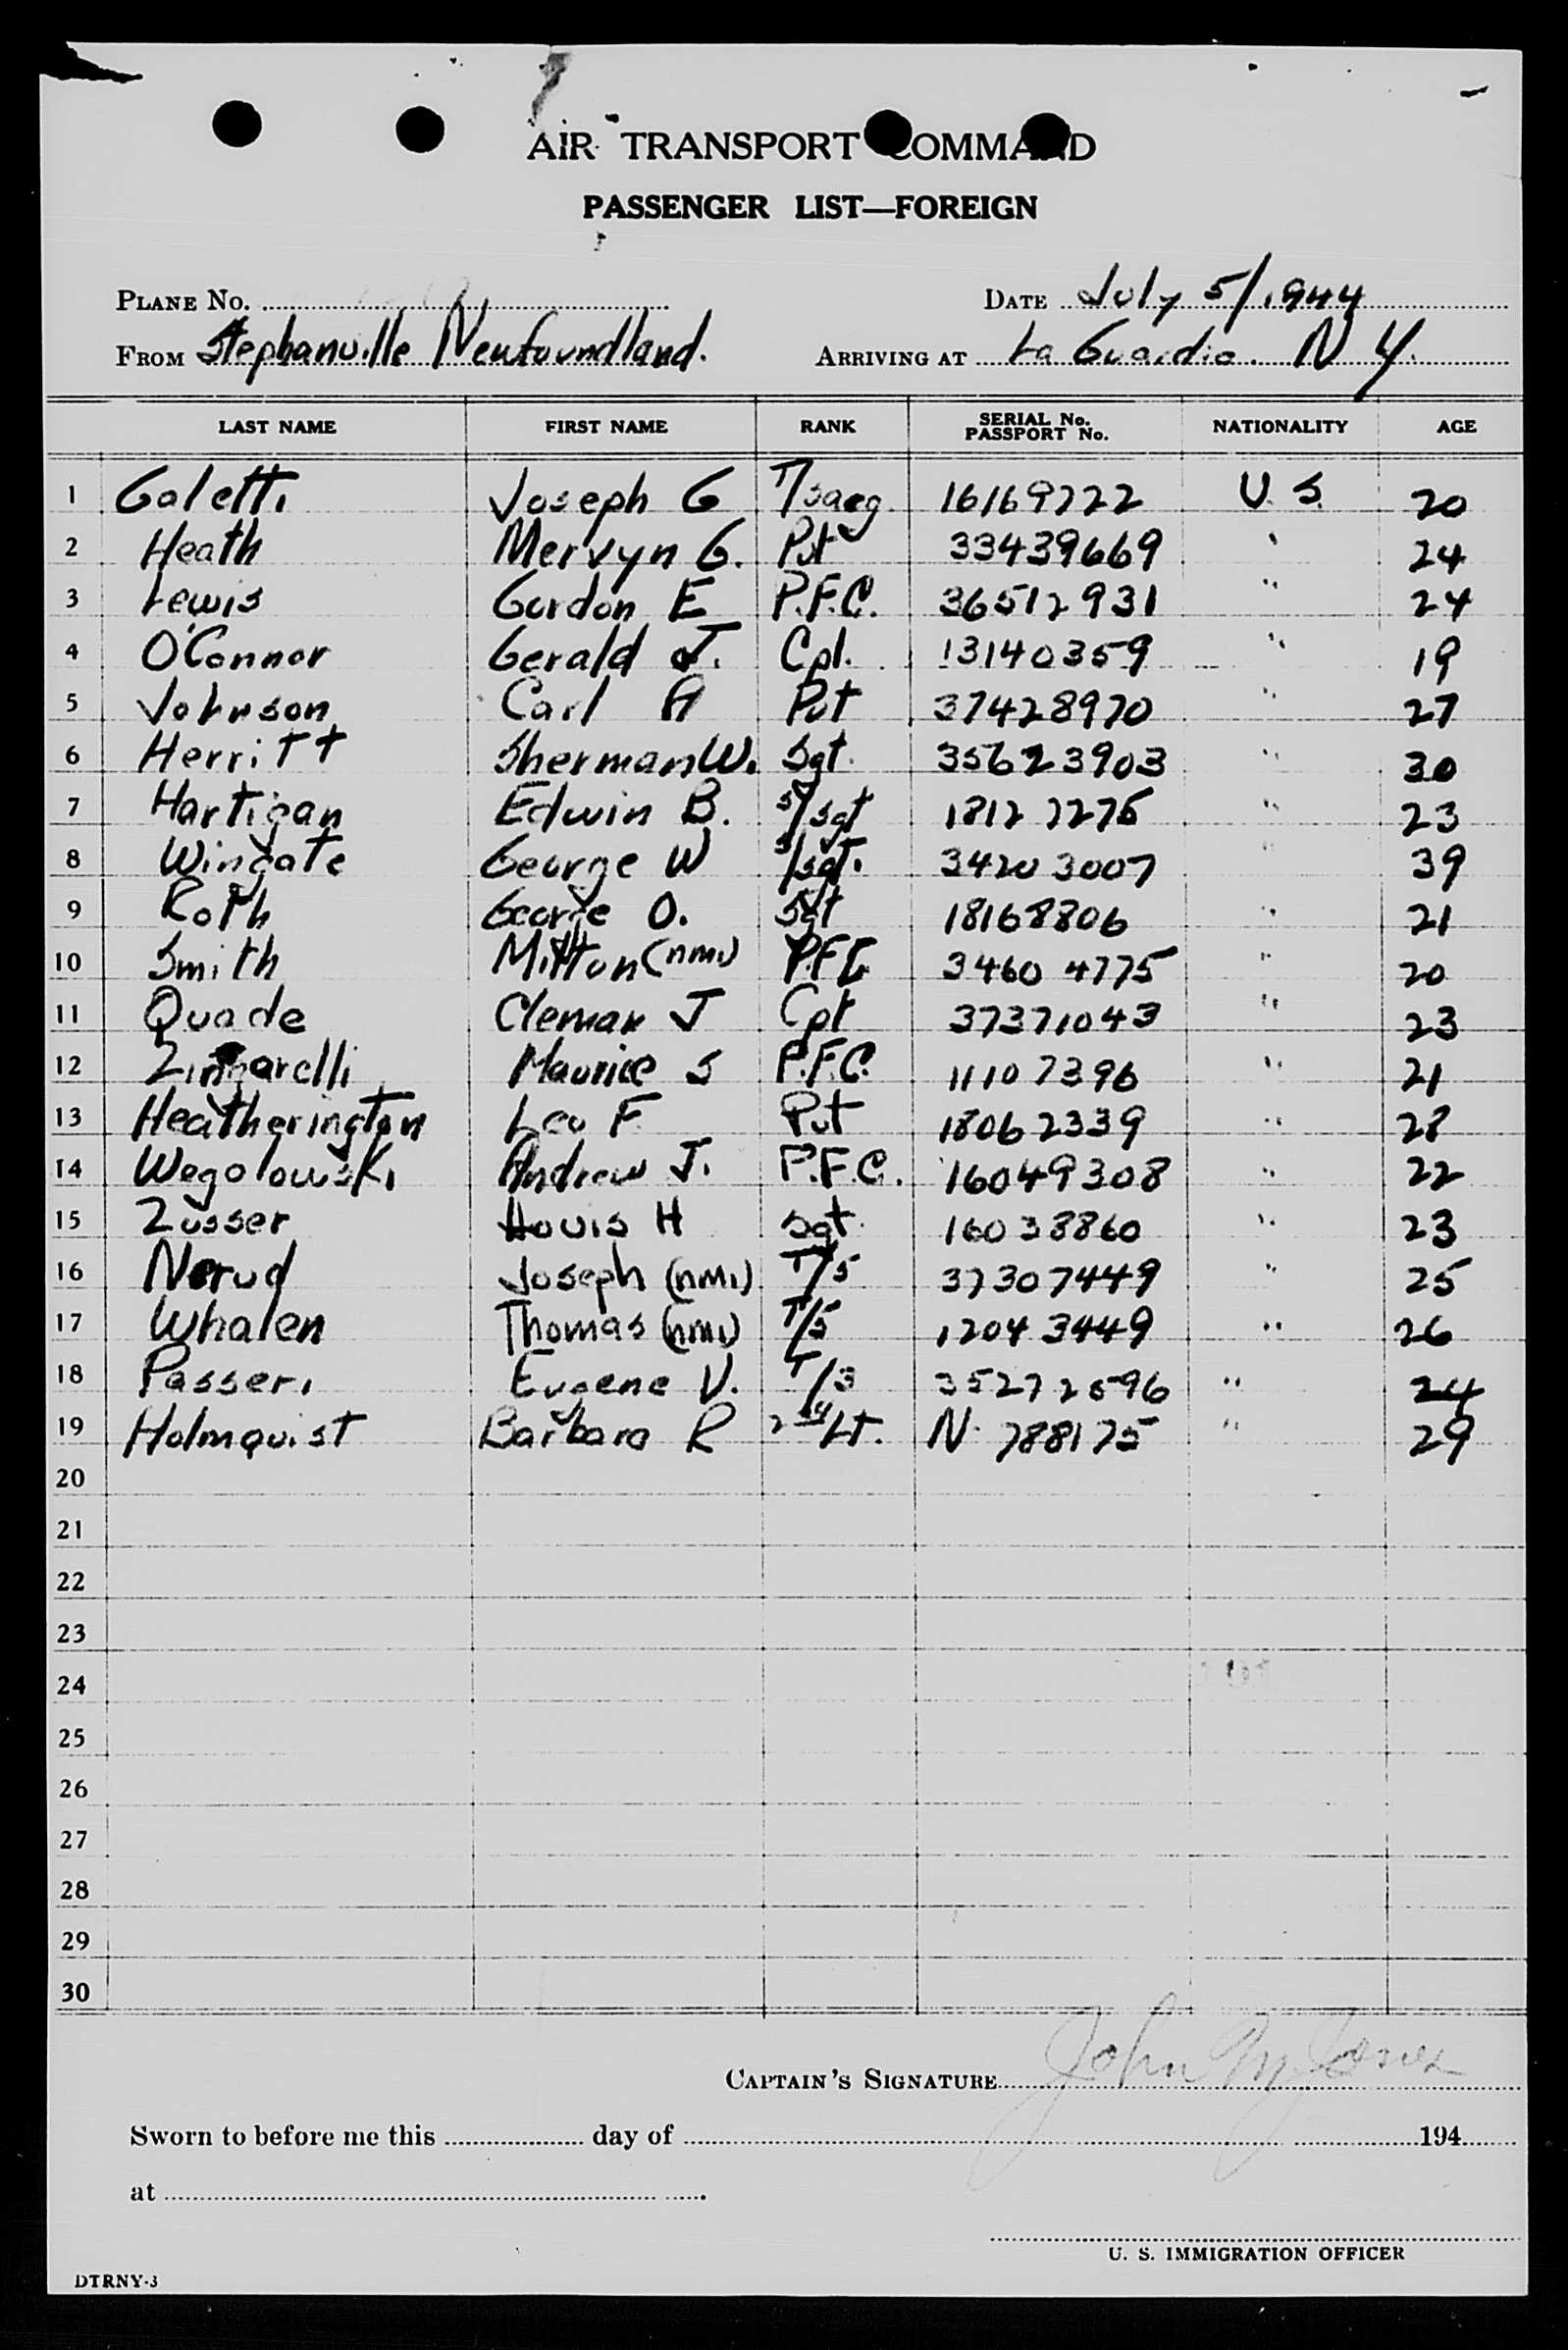 AIR TRANSPORT COMMAND
PASSENGER LIST—FOREIGN
PLANE No. DATE July 5/1944
FROM Stephanville Newfoundland. ARRIVING AT La Guardia. N Y.
LAST NAME FIRST NAME RANK SERIAL No. PASSPORT No. NATIONALITY AGE
1 Galetti Joseph G T/Sarg. 16169722 U. S. 20
2 Heath Mervyn G. Pvt 33439669 " 24
3 Lewis Gordon E P.F.C. 36512931 " 24
4 O'Connor Gerald J. Cpl. 13140359 " 19
5 Johnson Carl A Pvt 37428970 " 27
6 Herritt Sherman W. Sgt. 35623903 " 30
7 Hartigan Edwin B. S/Sgt 18127275 " 23
8 Wingate George W S/Sgt. 34203007 " 39
9 Roth George O. Sgt 18168806 " 21
10 Smith Milton (nmi) P.F.C 34604775 " 20
11 Quade Clemar J Cpt 37371043 " 23
12 Zingarelli Maurice S P.F.C. 11107396 " 21
13 Heatherington Leo F. Pvt 18062339 " 28
14 Wegolowski Andrew J. P.F.C. 16049308 " 22
15 Zusser Louis H Sgt. 16038860 " 23
16 Nerud Joseph (nmi) T/5 37307449 " 25
17 Whalen Thomas (nmi) T/5 12043449 " 26
18 Passeri Eugene V. T/3 35272596 " 24
19 Holmquist Barbara R 2nd Lt. N. 788175 " 29
20
21
22
23
24
25
26
27
28
29
30
CAPTAIN'S SIGNATURE John M Jones
Sworn to before me this day of 194
at
U. S. IMMIGRATION OFFICER
DTRNY-3